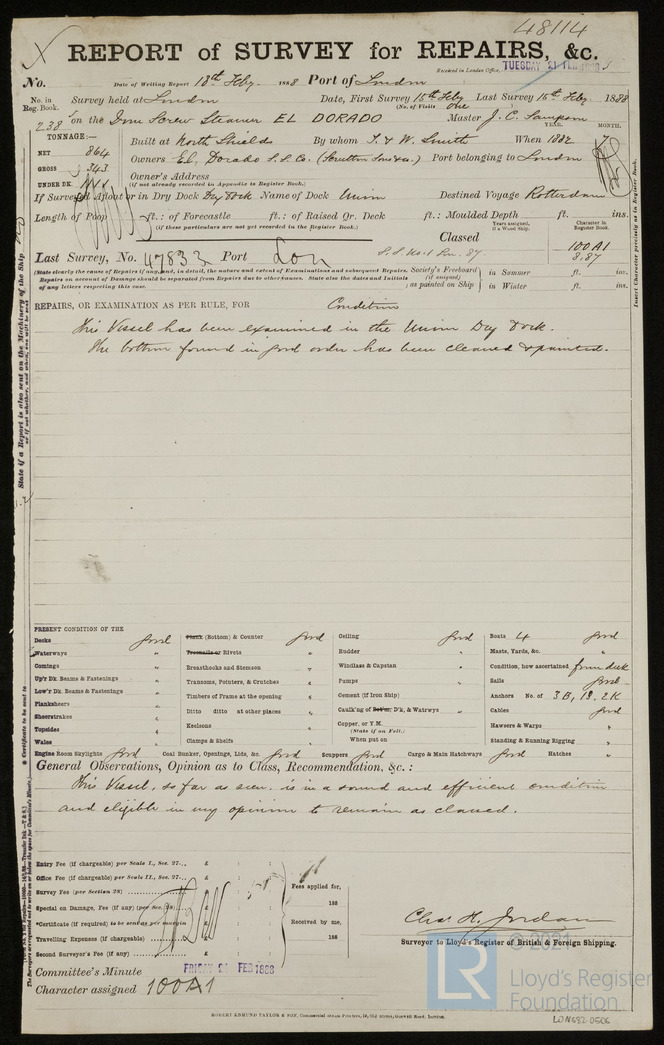 48114
REPORT of SURVEY for REPAIRS, &c.
Received in London Office,
TUESDAY 21 FEB 1888
No. Date of Writing Report 18th Feby. 1888 Port of London
No. in Reg. Book. Survey held at London Date, First Survey 15th Feby Last Survey 15th Feby 1888
(No. of Visits One
238 on the Iron Screw Steamer EL DORADO Master J. C. Sampson
TONNAGE:— YEAR. MONTH.
Built at North Shields By whom T. & W. Smith When 1882
NET 864
GROSS 343
Owners El Dorado S.S. Co. Port belonging to London
UNDER DK.
Owner's Address
(if not already recorded in Appendix to Register Book.)
If Surveyed Afloat or in Dry Dock Dry Dock Name of Dock Union Destined Voyage Rotterdam
Length of Poop ft.: of Forecastle ft.: of Raised Qr. Deck ft.: Moulded Depth ft. ins.
(if these particulars are not yet recorded in the Register Book.)
Years assigned, if a Wood Ship.
Character in Register Book.
Classed 100A1
8.87
Last Survey, No. 47832 Port Lon
S.S. No.1 Lon. 87
(State clearly the cause of Repairs if any, and, in detail, the nature and extent of Examinations and subsequent Repairs.
Repairs on account of Damage should be separated from Repairs due to other causes. State also the dates and Initials
of any letters respecting this case.
Society's Freeboard (if assigned) as painted on Ship
in Summer ft. ins.
in Winter ft. ins.
Insert Character precisely as in Register Book.
REPAIRS, OR EXAMINATION AS PER RULE, FOR Condition
This Vessel has been examined in the Union Dry Dock.
The bottom found in good order has been cleaned & painted.
State if a Report is also sent on the Machinery of the Ship
or if not whether, and when, one will be sent
PRESENT CONDITION OF THE
Decks good
Waterways "
Comings "
Up'r Dk. Beams & Fastenings "
Low'r Dk. Beams & Fastenings "
Planksheers "
Sheerstrakes "
Topsides "
Wales "
Plank (Bottom) & Counter good
Treenails or Rivets "
Breasthooks and Stemson "
Transoms, Pointers, & Crutches "
Timbers of Frame at the opening "
Ditto ditto at other places "
Keelsons "
Clamps & Shelfs "
Ceiling good
Rudder "
Windlass & Capstan "
Pumps "
Cement (if Iron Ship) "
Caulk'ng of Bot'm, D'k, & Watrwys "
Copper, or Y.M.
(State if on Felt.)
When put on
Boats 4 good
Masts, Yards, &c. "
Condition, how ascertained from deck
Sails good
Anchors No. of 3B, 1S, 2K
Cables good
Hawsers & Warps "
Standing & Running Rigging "
Engine Room Skylights good Coal Bunker, Openings, Lids, &c. good Scuppers good Cargo & Main Hatchways good Hatches "
General Observations, Opinion as to Class, Recommendation, &c.:
This Vessel, so far as seen, is in a sound and efficient condition
and eligible in my opinion to remain as classed.
Certificate to be sent to
Entry Fee (if chargeable) per Scale I., Sec. 27... £ : :
Office Fee (if chargeable) per Scale II., Sec. 27... £ : :
Survey Fee (per Section 28) £ : :
Special on Damage, Fee (if any) (per Sec. 28) £ : :
*Certificate (if required) to be sent as per margin £ : :
Travelling Expenses (if chargeable) £ : :
Second Surveyor's Fee (if any) £ : :
Fees applied for,
188
Received by me,
188
Chas. H. Jordan
Surveyor to Lloyd's Register of British & Foreign Shipping.
Committee's Minute FRIDAY 24 FEB 1888
Character assigned 100A1
ROBERT EDMUND TAYLOR & SON, Commercial Steam Printers, 19, Old Street, Goswell Road, London.
© 2021
LR
Lloyd's Register
Foundation
LON682-0506